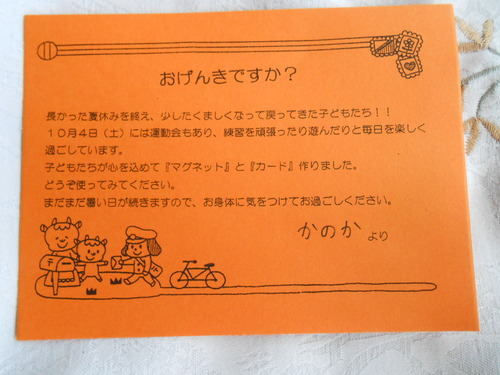 おげんきですか？
長かった夏休みを終え、少したくましくなって戻ってきた子どもたち！！
１０月４日（土）には運動会もあり、練習を頑張ったり遊んだりと毎日を楽しく
過ごしています。
子どもたちが心を込めて『マグネット』と『カード』作りました。
どうぞ使ってみてください。
まだまだ暑い日が続きますので、お身体に気をつけてお過ごしください。
かのか より
〒